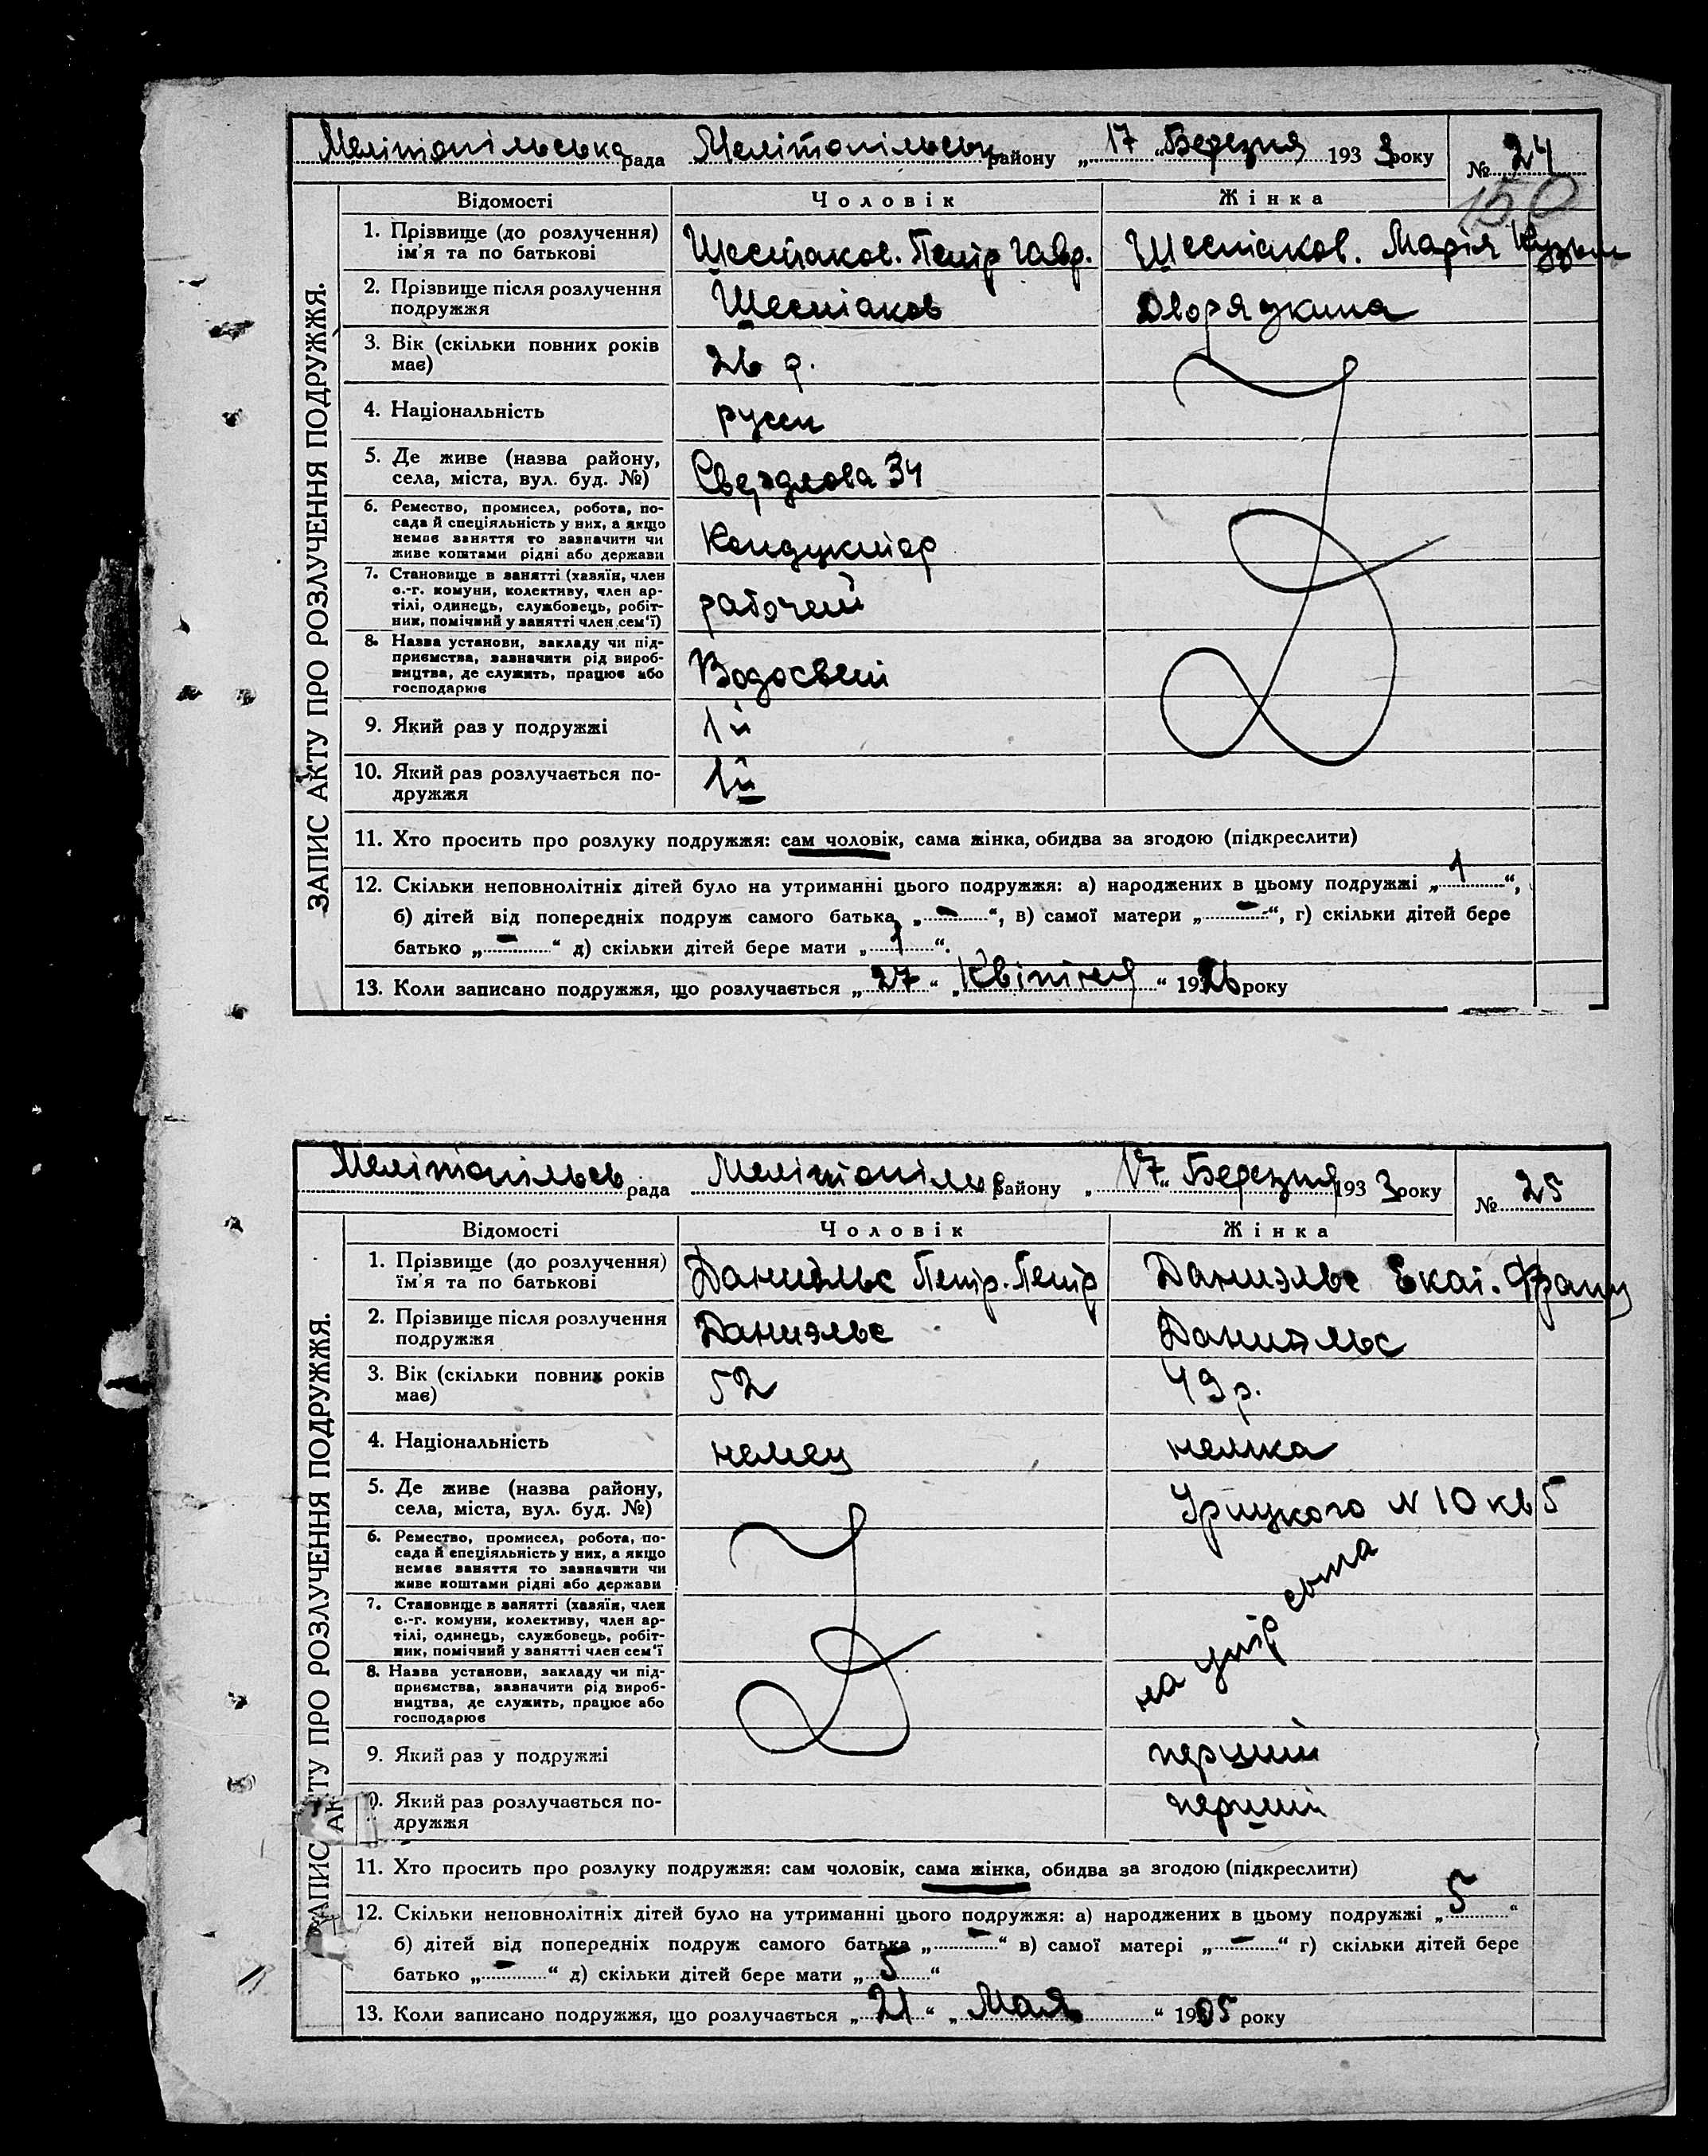 Мелітопільська рада Мелітопільськ району „ 17 “ Березня 193 3 року № 24
150
ЗАПИС АКТУ ПРО РОЗЛУЧЕННЯ ПОДРУЖЖЯ.
Відомості Чоловік Жінка
1. Прізвище (до розлучення) ім'я та по батькові Шестаков. Петр Гавр. Шестаков. Марія Кузьм
2. Прізвище після розлучення подружжя Шестаков Дворядкина
3. Вік (скільки повних років має) 26 р.
4. Національність русск
5. Де живе (назва району, села, міста, вул. буд. №) Свердлова 34
6. Ремество, промисел, робота, по-
сада й спеціяльність у них, а якщо
немає заняття то зазначити чи
живе коштами рідні або держави Кондуктор
7. Становище в занятті (хазяїн, член
с.-г. комуни, колективу, член ар-
тілі, одинець, службовець, робіт-
ник, помічний у занятті член сем'ї) рабочий
8. Назва установи, закладу чи під-
приємства, зазначити рід вироб-
ництва, де служить, працює або
господарює Водосвет
9. Який раз у подружжі 1й
10. Який раз розлучається по-
дружжя 1й
11. Хто просить про розлуку подружжя: сам чоловік, сама жінка, обидва за згодою (підкреслити)
12. Скільки неповнолітніх дітей було на утриманні цього подружжя: а) народжених в цьому подружжі „ 1 “,
б) дітей від попередніх подруж самого батька „ — “, в) самої матери „ — “, г) скільки дітей бере
батько „ — “ д) скільки дітей бере мати „ 1 “.
13. Коли записано подружжя, що розлучається „ 27 “ „ Квітня “ 1926 року
Мелітопільсь рада Мелітопільс району „ 17 “ Березня 193 3 року № 25
ЗАПИС АКТУ ПРО РОЗЛУЧЕННЯ ПОДРУЖЖЯ.
Відомості Чоловік Жінка
1. Прізвище (до розлучення) їм'я та по батькові Даниэльс Петр. Петр Даниэльс Екат. Франц
2. Прізвище після розлучення подружжя Даниэльс Даниэльс
3. Вік (скільки повних років має) 52 49 р.
4. Національність немец немка
5. Де живе (назва району, села, міста, вул. буд. №) Урицкого N 10 кв 5
6. Ремество, промисел, робота, по-
сада й спеціяльність у них, а якщо
немає заняття то зазначити чи
живе коштами рідні або держави
7. Становище в занятті (хазяїн, член
с.-г. комуни, колективу, член ар-
тілі, одинець, службовець, робіт-
ник, помічний у занятті член сем'ї
8. Назва установи, закладу чи під-
приємства, зазначити рід вироб-
ництва, де служить, працює або
господарює
на утр сына
9. Який раз у подружжі перший
10. Який раз розлучається по-
дружжя перший
11. Хто просить про розлуку подружжя: сам чоловік, сама жінка, обидва за згодою (підкреслити)
12. Скільки неповнолітніх дітей було на утриманні цього подружжя: а) народжених в цьому подружжі „ 5 “
б) дітей від попередніх подруж самого батька „ — “ в) самої матері „ — “ г) скільки дітей бере
батько „ — “ д) скільки дітей бере мати „ 5 “
13. Коли записано подружжя, що розлучається „ 21 “ „ Мая “ 1905 року